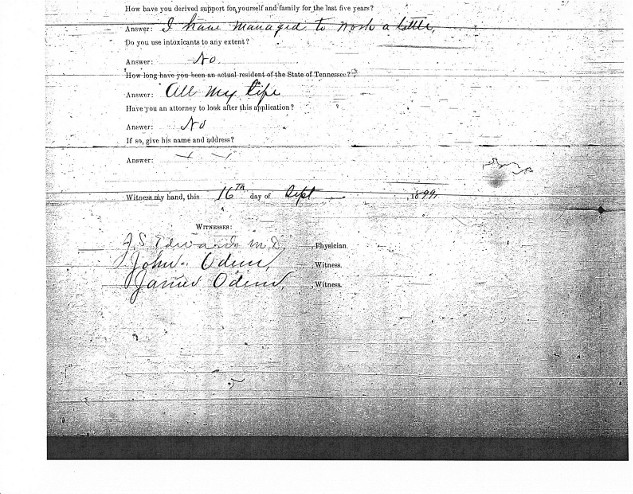 How have you derived support for yourself and family for the last five years?
Answer: I have managed to work a little,
Do you use intoxicants to any extent?
Answer: No
How long have you been an actual resident of the State of Tennessee?
Answer: All my life
Have you an attorney to look after this application?
Answer: No
If so, give his name and address?
Answer:
Witness my hand, this 16th day of Sept , 1899.
WITNESSES:
J.S. Edwards M.D, Physician.
John Odum, Witness.
James Odum, Witness.